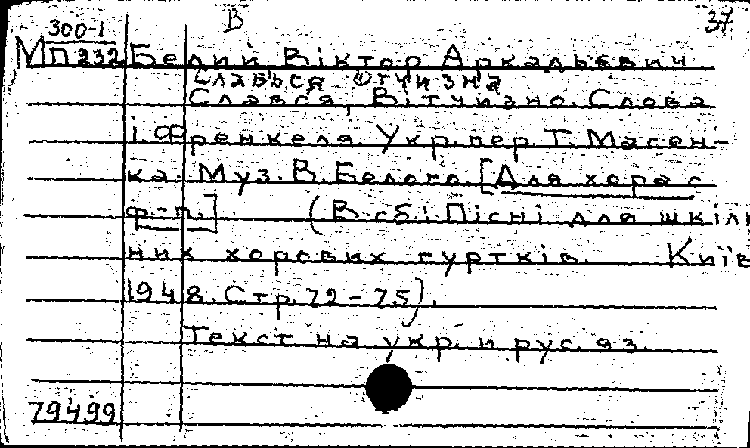 В 37
300-1
МП232 Белий Віктор Аркадьевич
Славься Отчизна
Слався, Вітчизно. Слова
і. Френкеля. Укр. пер. Т. Масен-
ка. Муз. В. Белого. [Для хора с
ф-п.] (В сб.: Пісні для шкіль
них хорових гуртків. Київ
1948. Стр. 72-75).
Текст на укр. и рус. яз.
79499